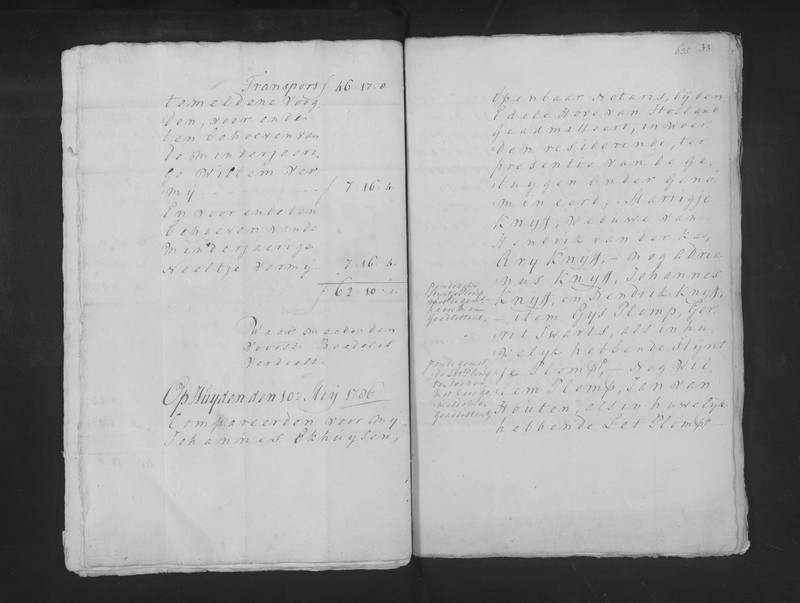 Transport f 46-17-8
temeldene Voog
den, voor ende
ten behoeven van
de minderjaeri
ge Willem Ver
my f 7-16-4
En voor en beten
behoeven vande
minderjaerige
Neeltje Vermy 7-16-4
f 62-10-
Waar meede den
voorsz. Boedel is
verdeelt.
Op Huyden den 10e Meij 1786
Compareerden voor my
Johannes Ekhuysen,
33
Openbaar Notaris, bij den
Edele Hove van Holland
geadmitteert, in Woer
den resideerende, ter
presentie van de ge
tuygen onder geno
mineerd; Marrigje
Knyff, Weduwe van
Hendrik van der Kas,
Ary Knyff, - nog Adria
nus Knyff, Johannes
Knyff, en Hendrik Knyff,
- item Gys Plomp, Ger
rit Swarts, als in hu
welyk hebbende Stynt
je Plomp, - Nog Wil
lem Plomp, Jan van
Houten, als in huwelyk
hebbende Let Plomp -
goedletters,
goedletters,